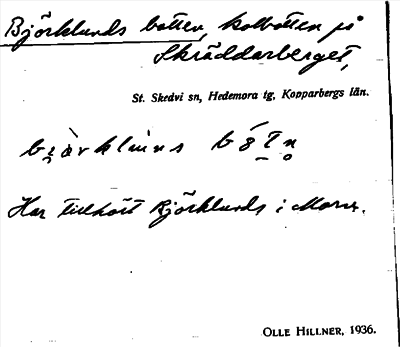 Björklunds botten, kolbotten på
Skräddarberget,
St. Skedvi sn, Hedemora tg, Kopparbergs län.
Har tillhört Björklunds i Mora.
OLLE HILLNER, 1936.